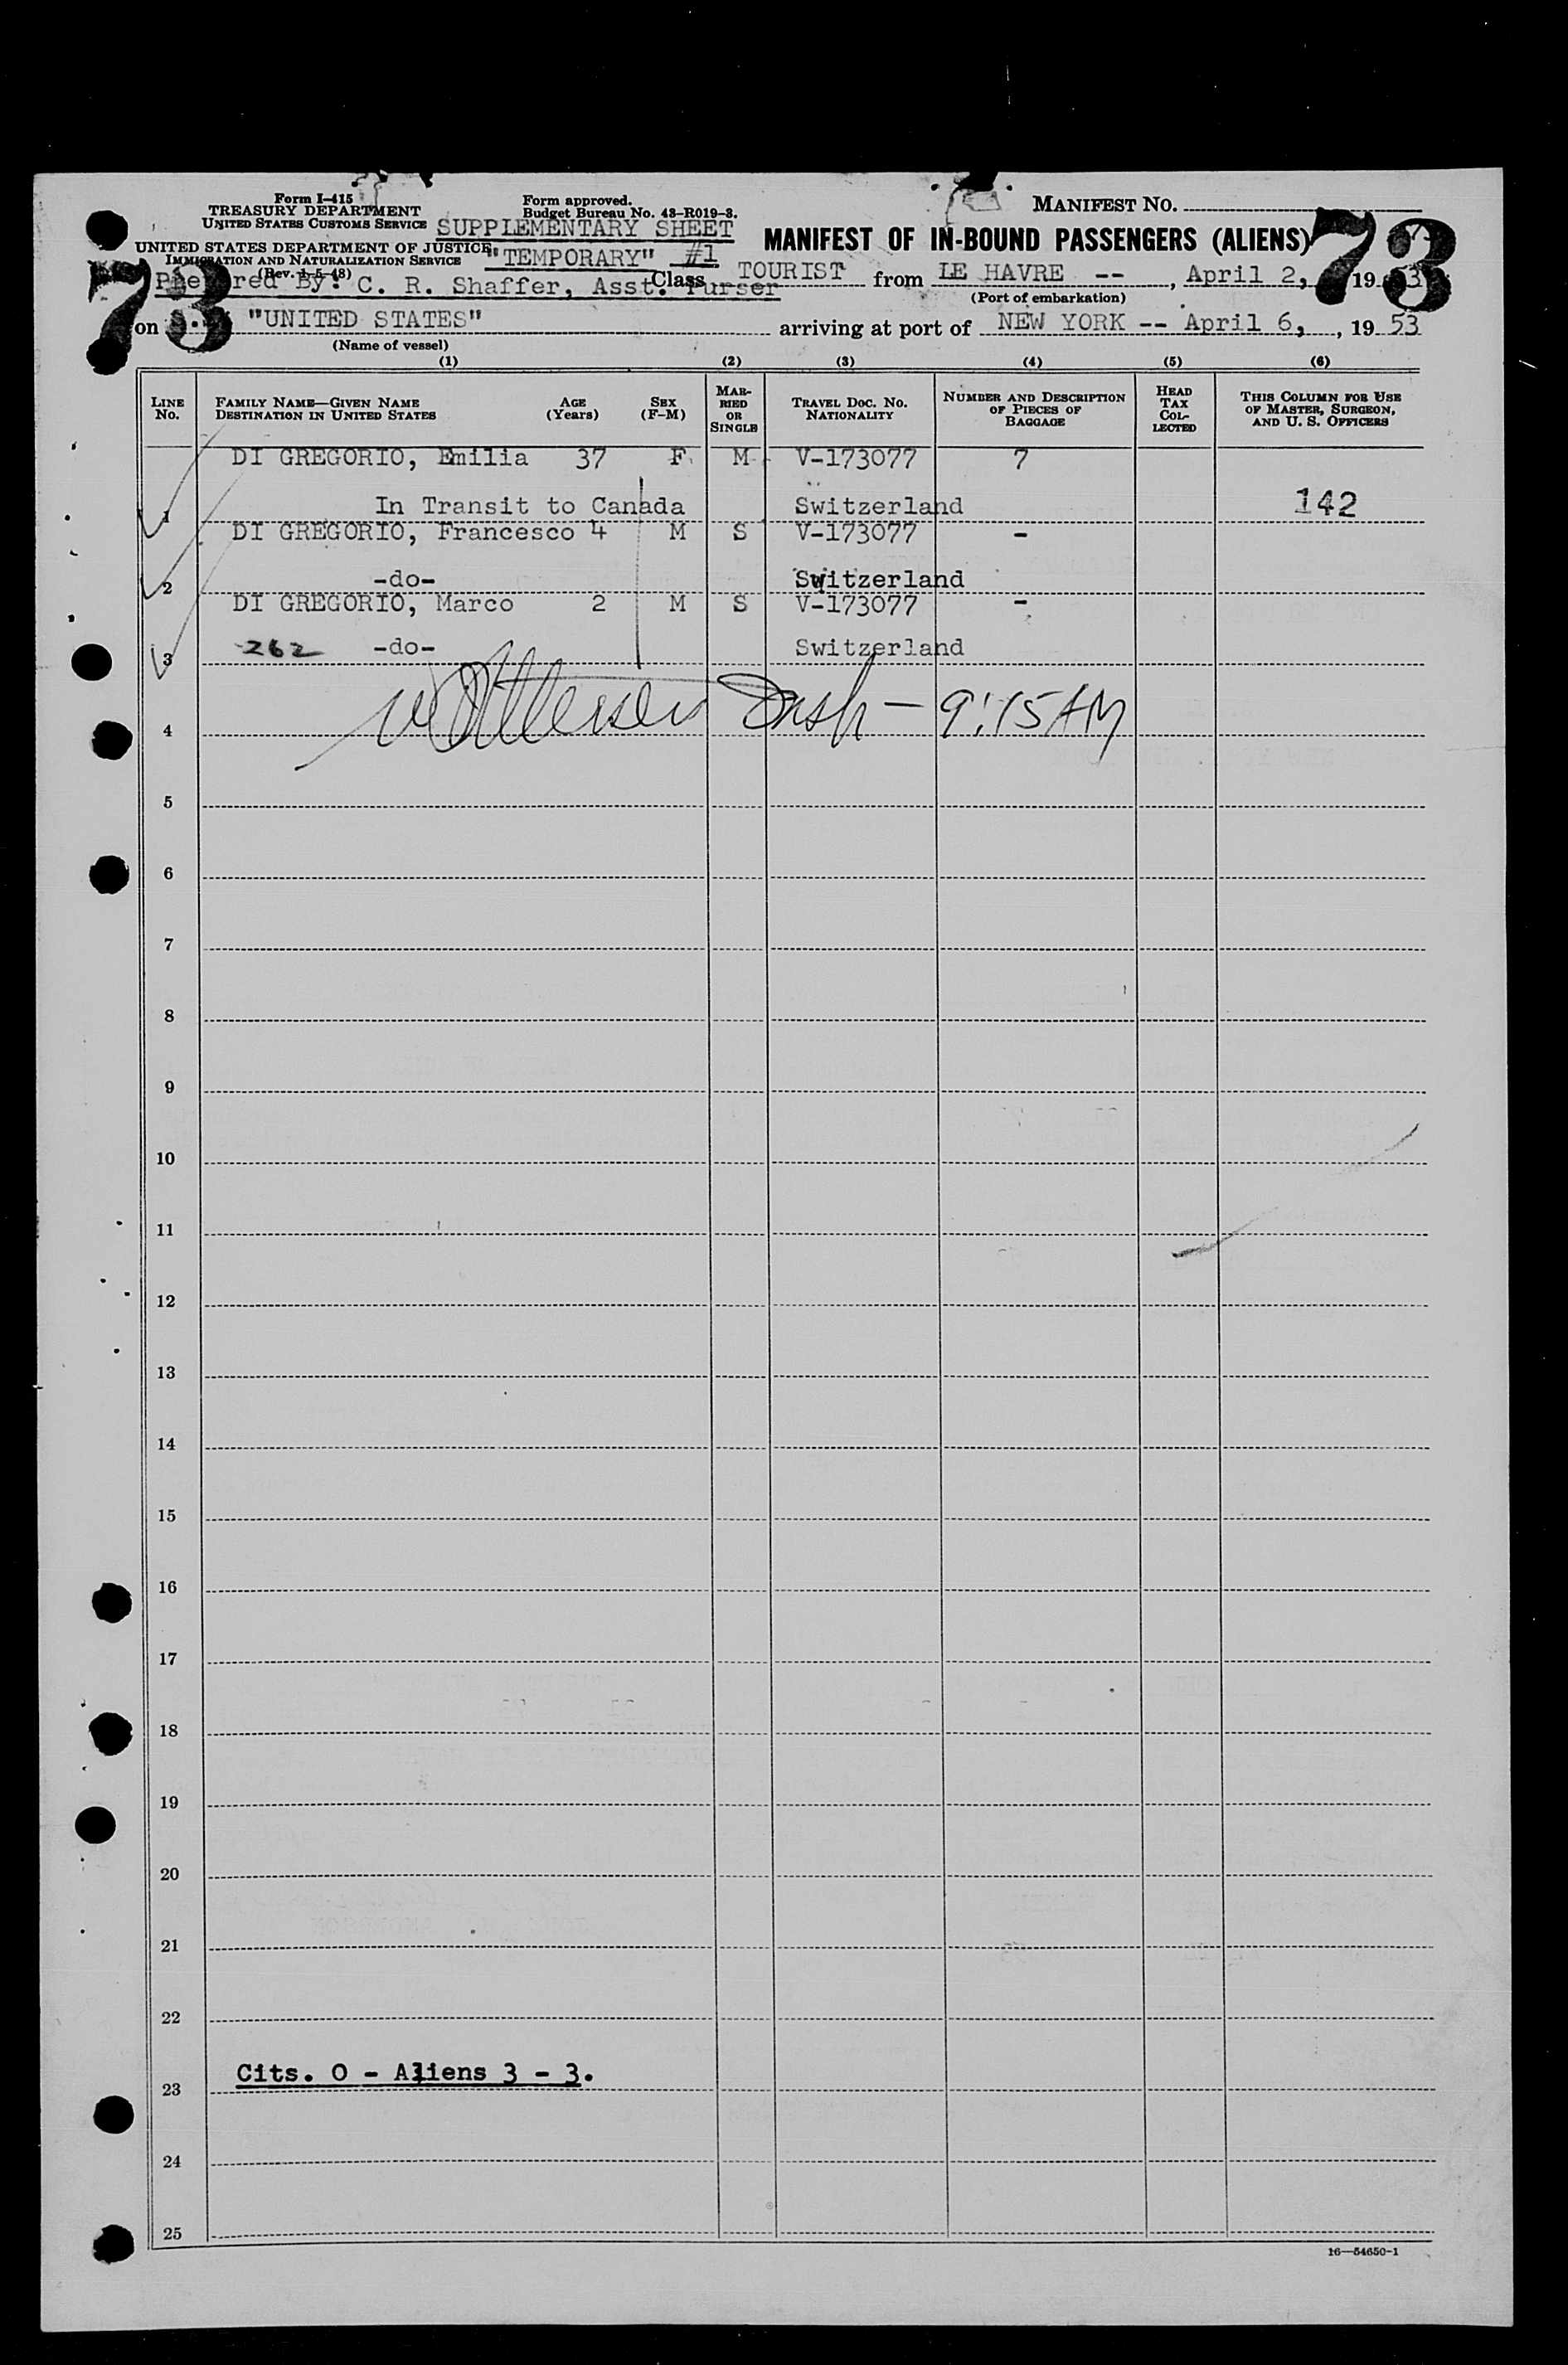 Form I-415
TREASURY DEPARTMENT
UNITED STATES CUSTOMS SERVICE
Form approved.
Budget Bureau No. 43-R019-3.
MANIFEST NO.
SUPPLEMENTARY SHEET
UNITED STATES DEPARTMENT OF JUSTICE
IMMIGRATION AND NATURALIZATION SERVICE
(Rev. 1-5-48)
"TEMPORARY" #1
MANIFEST OF IN-BOUND PASSENGERS (ALIENS)
73
73
Prepared By: C. R. Shaffer, Asst. Purser
Class TOURIST from LE HAVRE -- , April 2, 1953
(Port of embarkation)
on S.S. "UNITED STATES" arriving at port of NEW YORK -- April 6, , 1953
(Name of vessel)
(1) (2) (3) (4) (5) (6)
LINE NO.
FAMILY NAME—GIVEN NAME
DESTINATION IN UNITED STATES
AGE (Years)
SEX (F-M)
MARRIED OR SINGLE
TRAVEL DOC. NO.
NATIONALITY
NUMBER AND DESCRIPTION OF PIECES OF BAGGAGE
HEAD TAX COLLECTED
THIS COLUMN FOR USE OF MASTER, SURGEON, AND U. S. OFFICERS
DI GREGORIO, Emilia 37 F M V-173077 7
1 In Transit to Canada Switzerland 142
DI GREGORIO, Francesco 4 M S V-173077 -
2 -do- Switzerland
DI GREGORIO, Marco 2 M S V-173077 -
3 262 -do- Switzerland
4 Insp - 9:15 AM
5
6
7
8
9
10
11
12
13
14
15
16
17
18
19
20
21
22
Cits. 0 - Aliens 3 - 3.
23
24
25
16—54650-1